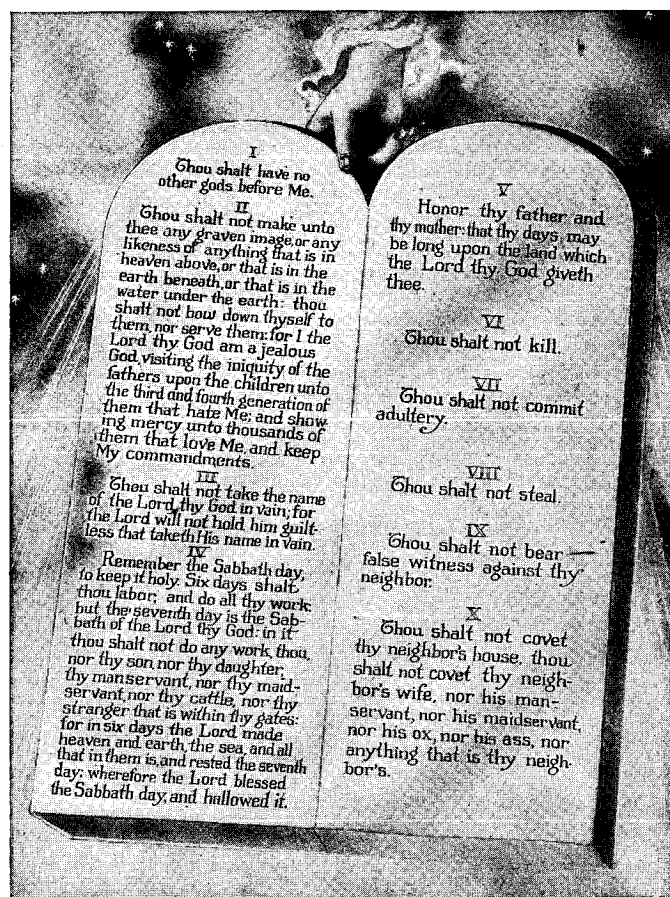 I
Thou shalt have no
other gods before Me.
II
Thou shalt not make unto
thee any graven image, or any
likeness of anything that is in
heaven above, or that is in the
earth beneath, or that is in the
water under the earth: thou
shalt not bow down thyself to
them, nor serve them: for I the
Lord thy God am a jealous
God, visiting the iniquity of the
fathers upon the children unto
the third and fourth generation of
them that hate Me; and show-
ing mercy unto thousands of
them that love Me, and keep
My commandments.
III
Thou shalt not take the name
of the Lord thy God in vain; for
the Lord will not hold him guilt-
less that taketh His name in vain.
IV
Remember the Sabbath day,
to keep it holy. Six days shalt
thou labor, and do all thy work:
but the seventh day is the Sab-
bath of the Lord thy God: in it
thou shalt not do any work, thou,
nor thy son, nor thy daughter,
thy manservant, nor thy maid-
servant, nor thy cattle, nor thy
stranger that is within thy gates:
for in six days the Lord made
heaven and earth, the sea, and all
that in them is, and rested the seventh
day: wherefore the Lord blessed
the Sabbath day, and hallowed it.
V
Honor thy father and
thy mother: that thy days may
be long upon the land which
the Lord thy God giveth
thee.
VI
Thou shalt not kill.
VII
Thou shalt not commit
adultery.
VIII
Thou shalt not steal.
IX
Thou shalt not bear
false witness against thy
neighbor.
X
Thou shalt not covet
thy neighbor's house, thou
shalt not covet thy neigh-
bor's wife, nor his man-
servant, nor his maidservant,
nor his ox, nor his ass, nor
anything that is thy neigh-
bor's.